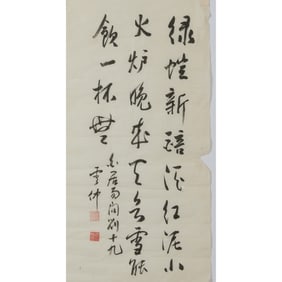 緑螘新醅酒红泥小
火炉晚来天欲雪能
飲一杯無
白居易问刘十九